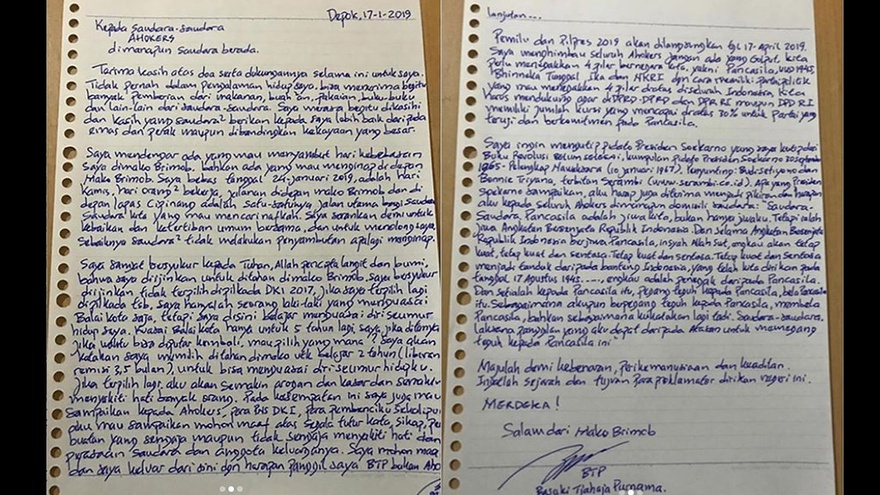 Depok, 17-1-2019
Kepada saudara-saudara
AHOKERS
dimanapun saudara berada.
Terima kasih atas doa serta dukungannya selama ini untuk saya.
Tidak pernah dalam pengalaman hidup saya, bisa menerima begitu
banyak pemberian dari makanan, buah²an, pakaian, buku-buku
dan lain-lain dari saudara-saudara. Saya merasa begitu dikasihi
dan kasih yang saudara² berikan kepada saya lebih baik daripada
emas dan perak maupun dibandingkan kekayaan yang besar.
Saya mendengar ada yang mau menyambut hari kebebasan
saya dimako Brimob, bahkan ada yang mau menginap didepan
Mako Brimob. Saya bebas tanggal 24 januari 2019, adalah hari
Kamis, hari orang² bekerja, jalanan didepan mako Brimob dan di
depan lapas Cipinang adalah satu-satunya jalan utama bagi saudara
saudara kita yang mau mencari nafkah. Saya sarankan demi untuk
kebaikan dan ketertiban umum bersama, dan untuk menolong saya,
sebaiknya saudara² tidak melakukan penyambutan apalagi menginap.
Saya sangat bersyukur kepada Tuhan, Allah pencipta langit dan bumi,
bahwa saya diijinkan untuk ditahan dimako Brimob. Saya bersyukur
diijinkan tidak terpilih dipilkada DKI 2017, jika saya terpilih lagi
dipilkada tsb, saya hanyalah seorang laki-laki yang menguasai
Balai Kota saja, tetapi saya disini belajar menguasai diri seumur
hidup saya. Kuasai Balai Kota hanya untuk 5 tahun lagi, saya jika ditanya
jika waktu bisa diputar kembali, mau pilih yang mana? Saya akan
katakan saya memilih ditahan dimako utk belajar 2 tahun (liburan
remisi 3,5 bulan), untuk bisa menguasai diri seumur hidupku.
Jika terpilih lagi, aku akan semakin arogan dan kasar dan semakin
menyakiti hati banyak orang. Pada kesempatan ini saya juga mau
sampaikan kepada Ahokers, para PNS DKI, para pembenciku sekalipun,
aku mau sampaikan mohon maaf atas segala tutur kata, sikap, per
buatan yang sengaja maupun tidak sengaja menyakiti hati dan
perasaan saudara dan anggota keluarganya. Saya mohon maaf
dan saya keluar dari sini dengan harapan panggil saya BTP bukan Aho
lanjutan...
Pemilu dan Pilpres 2019 akan dilangsungkan tgl 17-April 2019.
Saya menghimbau seluruh Ahokers jangan ada yang Golput, kita
perlu menegakkan 4 pilar bernegara kita, yakni Pancasila, UUD 1945,
Bhinneka Tunggal Ika dan NKRI dgn cara memiliki Partai politik
yang mau menegakkan 4 pilar diatas diseluruh Indonesia. Kita
Harus mendukung agar di DPRD-DPRD dan DPR RI maupun DPD RI
memiliki jumlah kursi yang mencapai diatas 30% untuk Partai yang
teruji dan berkomitmen pada Pancasila.
Saya ingin mengutip pidato Presiden Soekarno yang saya kutip dari
Buku Revolusi belum selesai, kumpulan pidato Presiden Soekarno 30 september
1965 - Pelengkap Nawaksara (10 januari 1967). Penyunting: Budi setiyono dan
Bonnie Triyana, terbitan Serambi (www.serambi.co.id). Apa yang Presiden
Soekarno sampaikan, aku harap juga diterima menjadi pikiran dan harapan
aku kepada seluruh Ahokers dimanapun domisili saudara: Saudara-
saudara, Pancasila adalah jiwa kita, bukan hanya jiwaku. Tetapi ialah
jiwa Angkatan Bersenjata Republik Indonesia. Dan selama Angkatan Bersenjata
Republik Indonesia berjiwa Pancasila, insyah Allah Swt, engkau akan tetap
kuat, tetap kuat dan sentosa. Tetap kuat dan sentosa. Tetap kuat dan sentosa
menjadi tanduk daripada banteng Indonesia, yang telah kita dirikan pada
tanggal 17 Agustus 1945......engkau adalah penegak daripada Pancasila.
Dan setialah kepada Pancasila itu, pegang teguh kepada Pancasila, bela Pancasila
itu. Sebagaimana akupun berpegang teguh kepada Pancasila, membela
Pancasila, bahkan sebagaimana kukatakan lagi tadi, Saudara-saudara,
laksana panggilan yang aku dapat daripada Atasan untuk memegang
teguh kepada Pancasila ini".
Majulah demi kebenaran, Perikemanusiaan dan keadilan.
Ingatlah sejarah dan tujuan para proklamator dirikan negeri ini.
MERDEKA!
Salam dari Mako Brimob
BTP
Basuki Tjahaja Purnama.